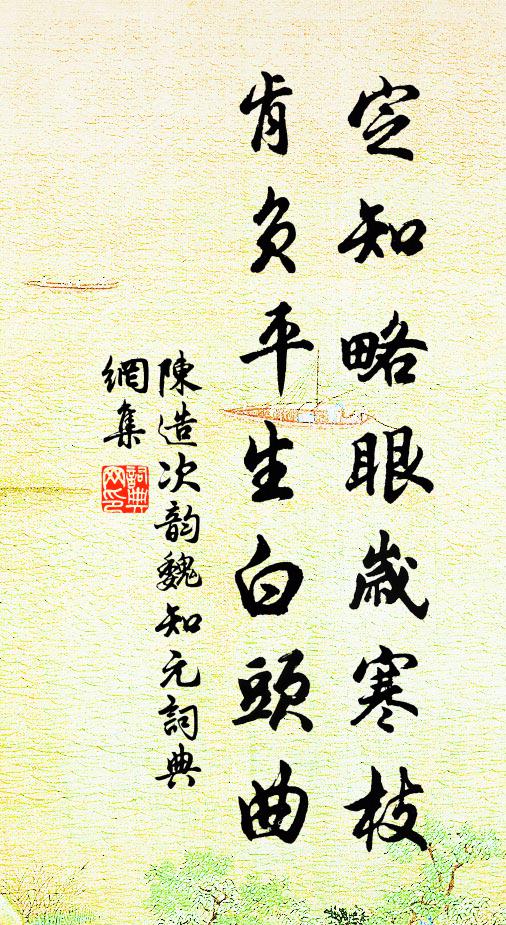 定知略眼歲寒枝
肯負平生白頭曲
陳造次韵魏知元詞典
網集
詞典網印